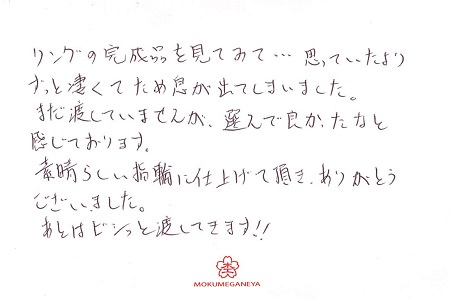 リングの完成品を見てみて… 思っていたより
ずっと凄くてため息が出てしまいました。
まだ渡していませんが、選んで良かったなと
感じております。
素晴らしい指輪に仕上げて頂き、ありがとう
ございました。
あとはビシっと渡してきます!!
MOKUMEGANEYA